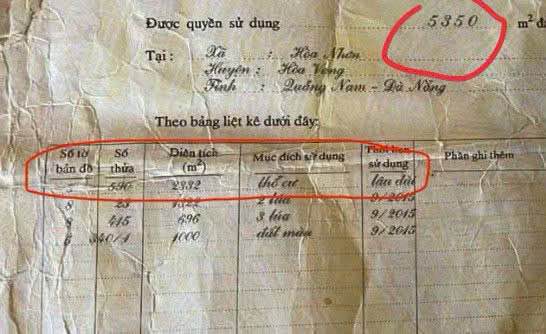 Được quyền sử dụng 5350 m² đ
Tại : Xã : Hòa Nhơn
Huyện : Hòa Vang
Tỉnh : Quảng Nam - Đà Nẵng
Theo bảng liệt kê dưới đây:
Số tờ bản đồ Số thửa Diện tích (m²) Mục đích sử dụng Thời hạn sử dụng Phần ghi thêm
590 2332 thổ cư lâu dài
8 23 1322 2 lúa 9/2015
8 415 696 3 lúa 9/2015
6 340/1 1000 đất màu 9/2015